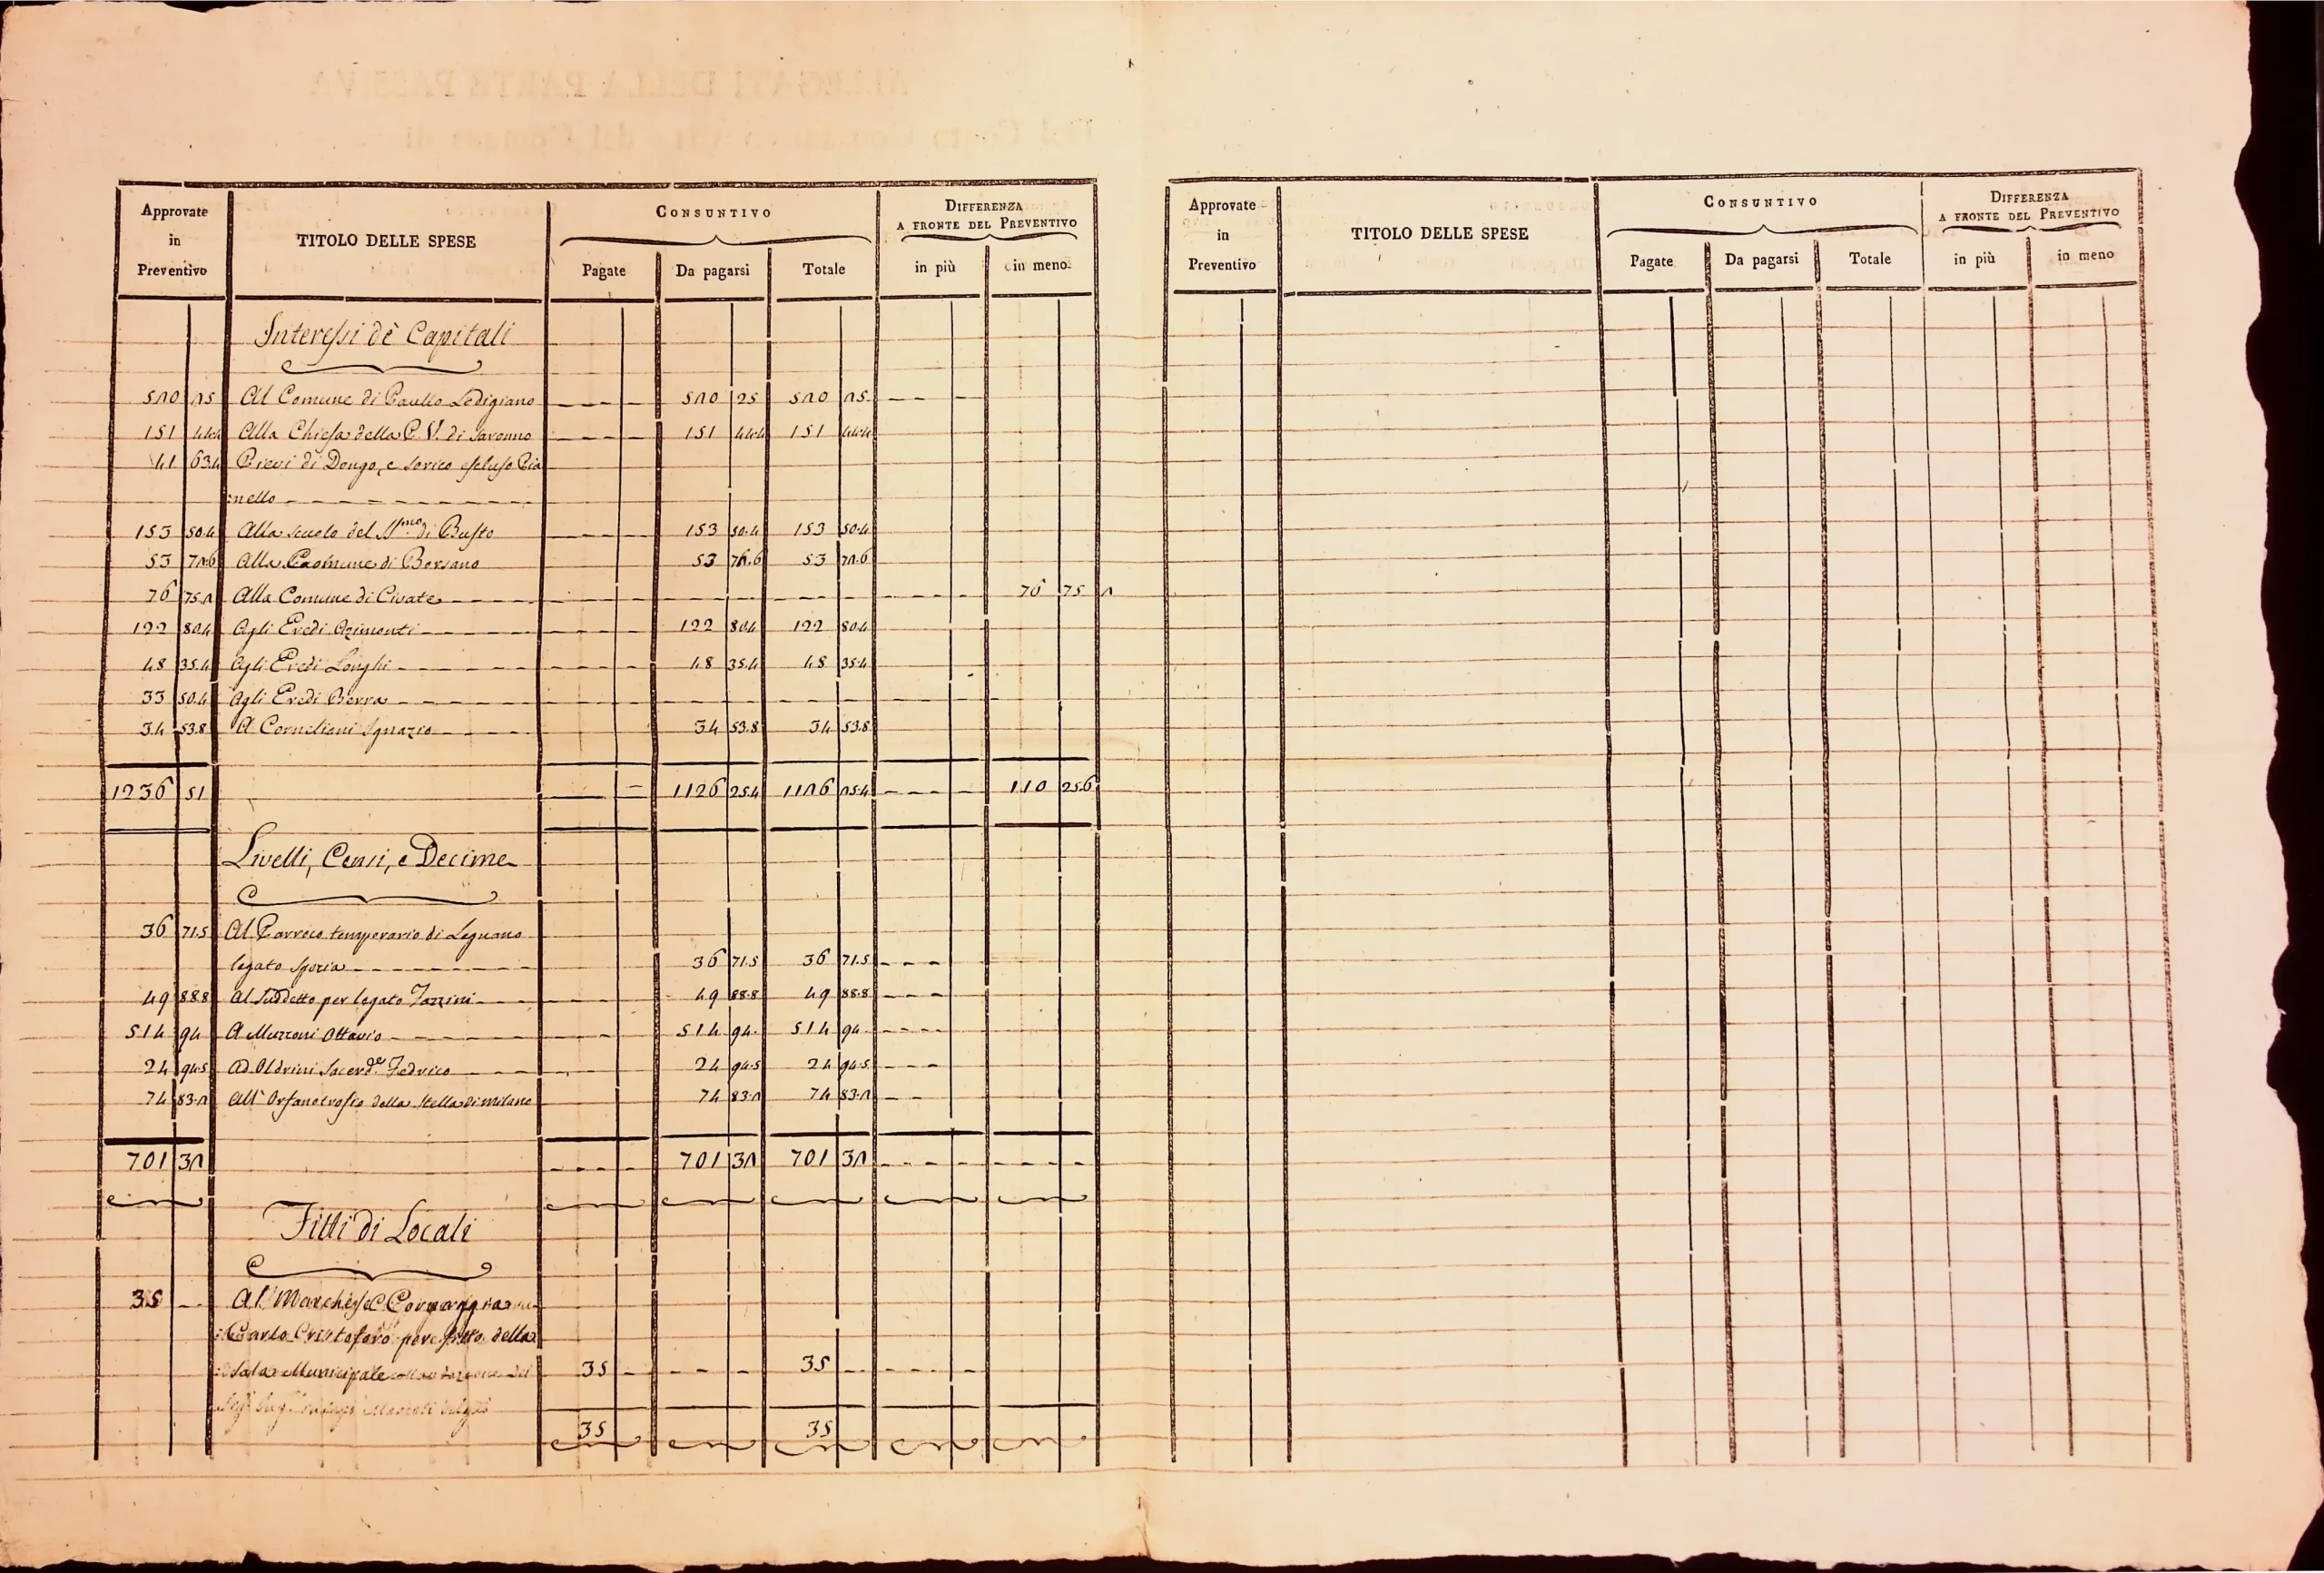 ALLEGATI DELLA PARTE PASSIVA
Approvate in Preventivo TITOLO DELLE SPESE CONSUNTIVO DIFFERENZA A FRONTE DEL PREVENTIVO
Pagate Da pagarsi Totale in più in meno
Interessi de' Capitali
520 25 Al Comune di Paullo Lodigiano - - - - 520 25 520 25 - - -
151 444 Alla Chiesa della B. V. di Saronno - - - - 151 444 151 444
41 634 Pievi di Dongo, e Sorico escluso Pia
:nello - - - - - - - -
153 50.4 Alla scuola del SS.mo di Busto - - - - 153 50.4 153 50.4
53 72.6 Alla Comune di Borsano 53 72.6 53 72.6
76 75.2 Alla Comune di Civate - - - - - - - - - - 76 75 2
122 80.4 Agli Eredi Azimonti - - - - 122 80.4 122 80.4
48 35.4 Agli Eredi Longhi - - - - 48 35.4 48 35.4
33 50.4 Agli Eredi Berra - - - - - - - -
34 53.8 A Corneliani Ignazio - - - - 34 53.8 34 53.8
1236 51 — 1126 25.4 1126 25.4 - - - - 110 25.6
Livelli, Censi, e Decime
36 71.5 Al Parroco temporario di Legnano
legato Spezia - - - - - - 36 71.5 36 71.5 - - -
49 88.8 Al Suddetto per legato Tazzini - - - - 49 88.8 49 88.8 - - -
514 94 A Mezzoni Ottavio - - - - 514 94. 514 94. - - - -
24 94.5 Ad Oldrini Sacerd.e Fedrico - - - - 24 94.5 24 94.5 - - -
74 83.2 All' Orfanotrofio della Stella di Milano 74 83.2 74 83.2 - -
701 32 - - - - 701 32 701 32 - - - - - - - -
Fitti di Locali
35 - - Al Marchese
Carlo Cristoforo per fitto della
Sala Municipale 35 - - - - - 35 - - - - - -
35 35
Approvate in Preventivo TITOLO DELLE SPESE CONSUNTIVO DIFFERENZA A FRONTE DEL PREVENTIVO
Pagate Da pagarsi Totale in più in meno